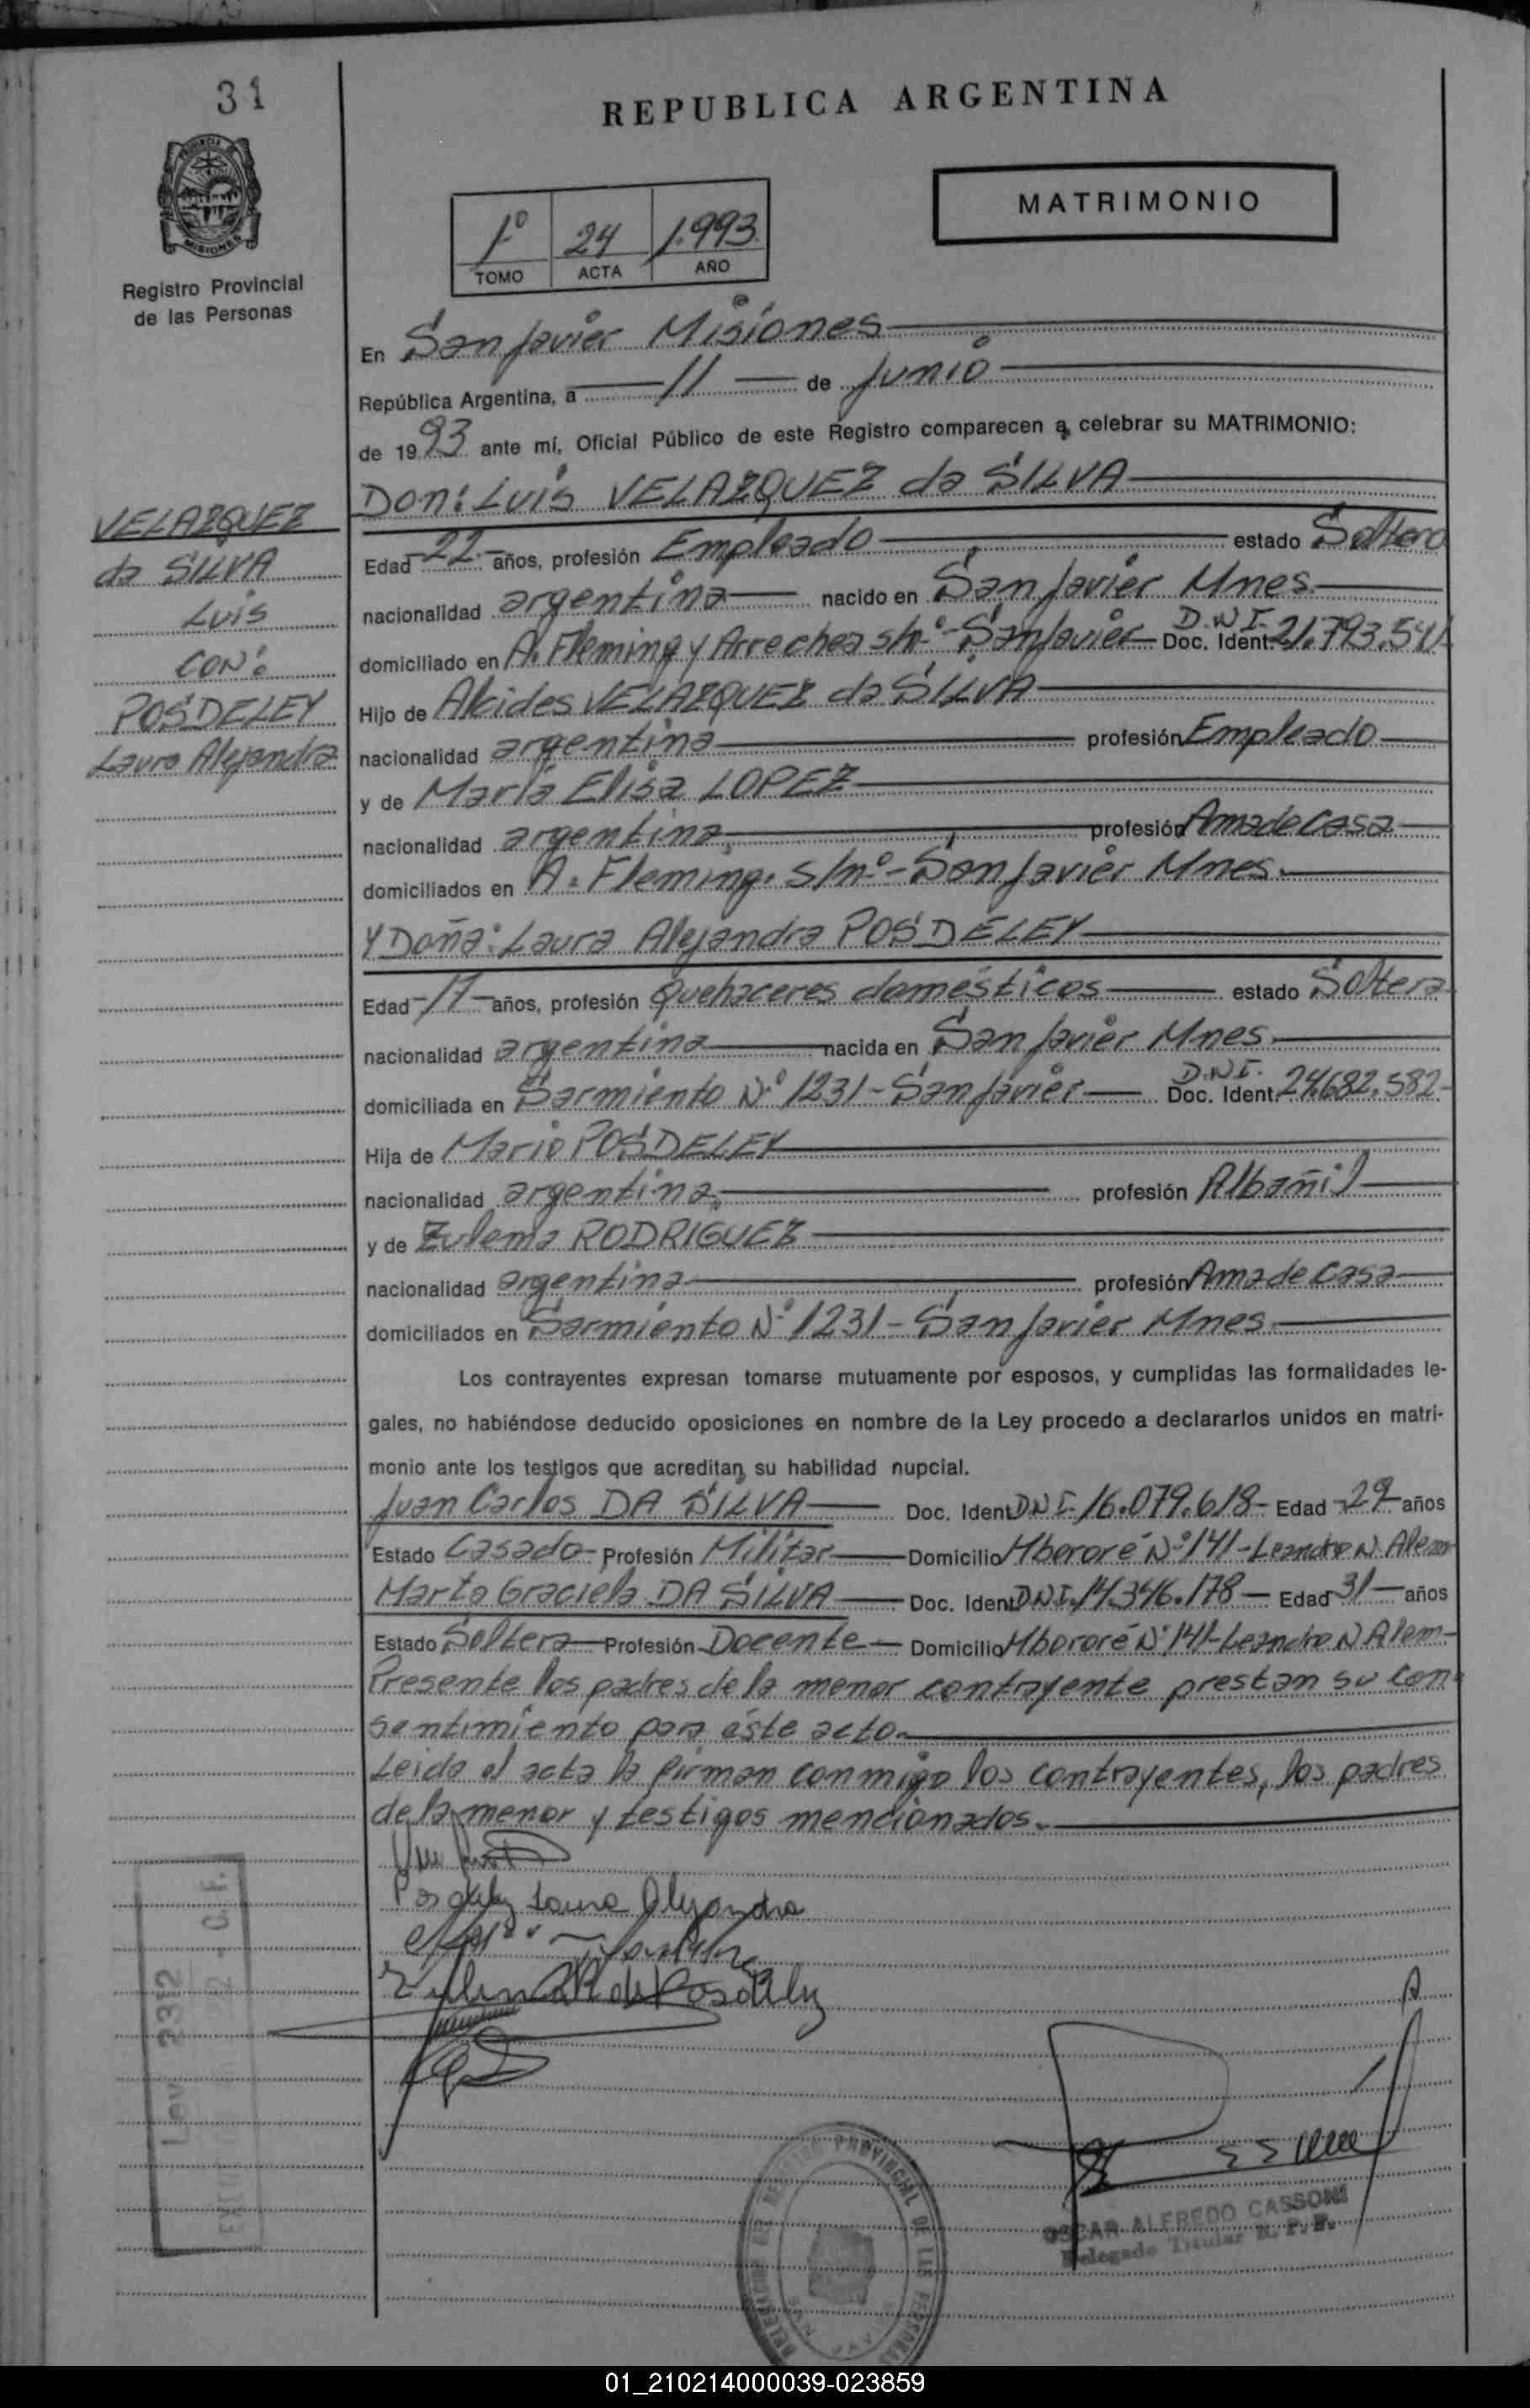 31
REPUBLICA ARGENTINA
MATRIMONIO
PROVINCIA
MISIONES
Registro Provincial
de las Personas
1º 24 1.993.
TOMO ACTA AÑO
En San Javier Misiones
República Argentina, a 11 de Junio
de 1993 ante mí, Oficial Público de este Registro comparecen a celebrar su MATRIMONIO:
Don: Luis VELAZQUEZ da SILVA
VELAZQUEZ
da SILVA
Luis
CON:
POSDELEY
Laura Alejandra
Edad -22- años, profesión Empleado estado Soltero
nacionalidad argentina nacido en San Javier Mnes.
domiciliado en A. Fleming y Arrechea s/nº - San Javier D.N.I. Doc. Ident. 21.793.541
Hijo de Alcides VELAZQUEZ da SILVA
nacionalidad argentina profesión Empleado
y de María Elisa LOPEZ
nacionalidad argentina profesión Ama de casa
domiciliados en A. Fleming. s/nº - San Javier Mnes.
Y Doña: Laura Alejandra POSDELEY
Edad -17- años, profesión Quehaceres domésticos estado Soltera
nacionalidad argentina nacida en San Javier Mnes.
domiciliada en Sarmiento Nº 1231 - San Javier D.N.I. Doc. Ident. 24.682.582-
Hija de Mario POSDELEY
nacionalidad argentina profesión Albañil
y de Zulema RODRIGUEZ
nacionalidad argentina profesión Ama de casa
domiciliados en Sarmiento Nº 1231 - San Javier Mnes.
Los contrayentes expresan tomarse mutuamente por esposos, y cumplidas las formalidades le-
gales, no habiéndose deducido oposiciones en nombre de la Ley procedo a declararlos unidos en matri-
monio ante los testigos que acreditan su habilidad nupcial.
Juan Carlos DA SILVA Doc. Ident DNI- 16.079.618- Edad -29- años
Estado Casado- Profesión Militar Domicilio Mbororé Nº 141 - Leandro N. Alem
Marta Graciela DA SILVA Doc. Ident DNI. 14.346.178 - Edad 31- años
Estado Soltera Profesión Docente Domicilio Mbororé Nº 141 - Leandro N Alem-
Presente los padres de la menor contrayente prestan su con-
sentimiento para éste acto.
Leida el acta la firman conmigo los contrayentes, los padres
de la menor y testigos mencionados.
Posdeley Laura Alejandra
Zulema R de Posdeley
Ley 2312
OSCAR ALFREDO CASSONI
Delegado Titular R. P. P.
01_210214000039-023859